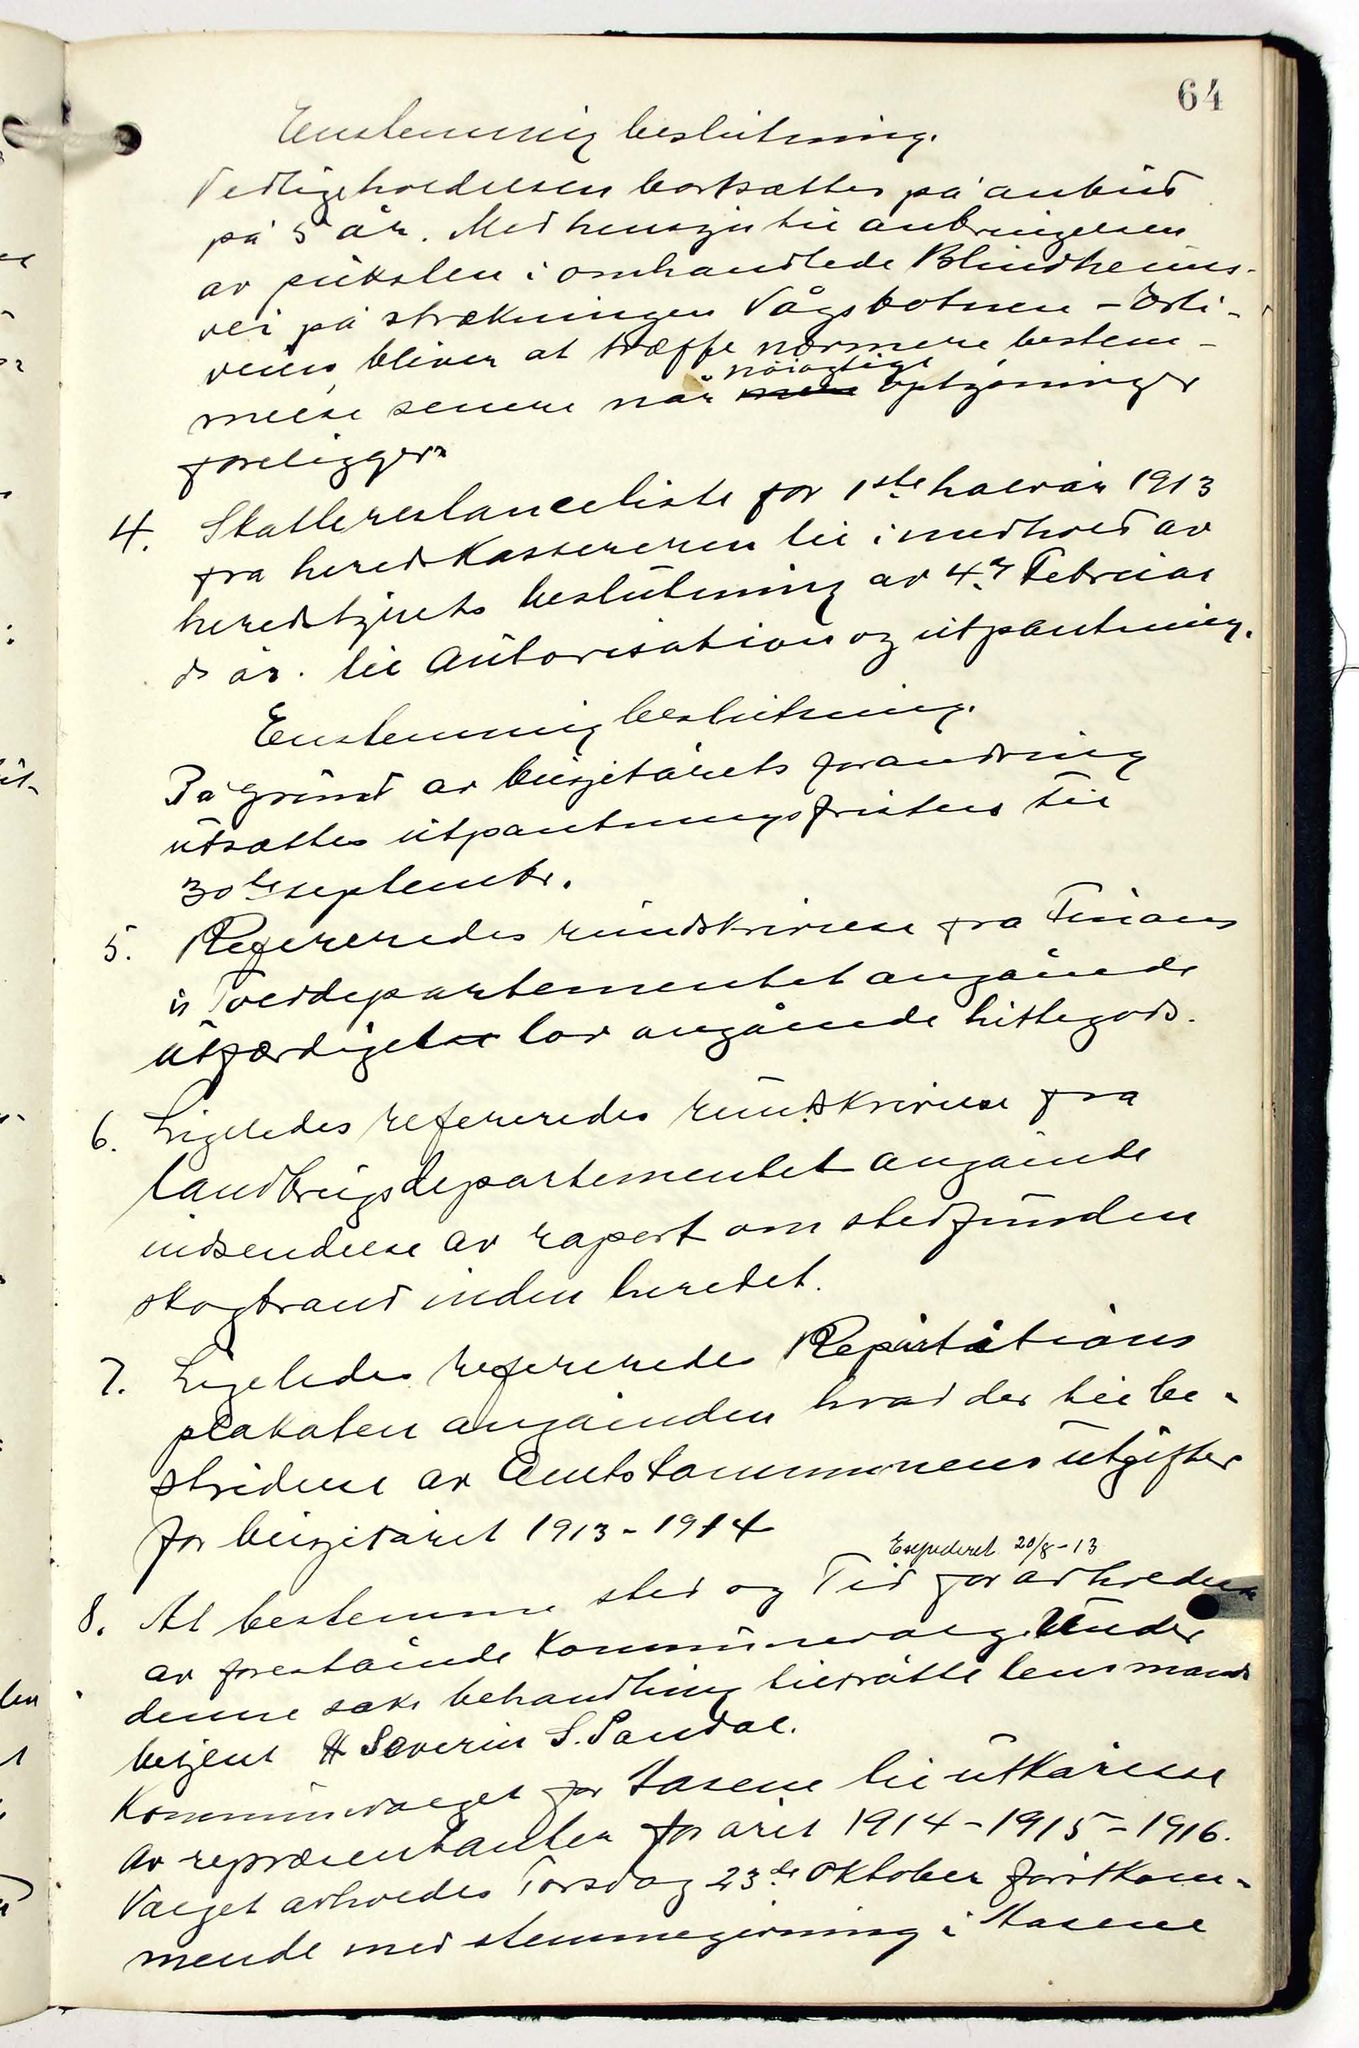 64
Enstemmig beslutning.
Vedligeholdelsen bortsættes på anbud
på 5 år. Med hensyn til anbringelsen
av pukslen i omhandlede Blindheims-
vei på strækningen Vågsbotnen –
bliver at træffe nærmere bestem-
melse senere når nøiagtige optjsninger
foreligger.
4. Skatterestanceliste for 1ste halvår 1913
fra heredskassereren til i medhold av
heredstyrets beslutning av 4de Februar
d. år. til Autorisation og utpantning.
Enstemmig beslutning.
På grund av budjetårets forandring
utsættes utpantningsfristen til
30te septembr.
5. Refereredes rundskrivelse fra Finans
& Tolddepartementet angående
utfærdiget lov angående hittegods.
6. Ligeledes refereredes rundskrivelse fra
Landbrugsdepartementet angående
indsendelse av raport om stedfunden
skogbrand inden heredet.
7. Ligeledes refereredes Repartitions
plakaten angånden hvad der til be-
stridelse av Amtskommunens utgifter
for budjetåret 1913-1914
Expederet 20/8-13
8. At bestemme sted og Tid for avholdelse
av forestående Kommunevalg. Under
denne saks behandling tilstråtte lensmands
betjent H Severin S. Sandal.
Kommunevalget for Hasene til utkårelse
av repræsentanter for året 1914-1915-1916.
Valget avholdes Torsdag 23de Oktober førstkom-
mende med stemmegivning i Hasene